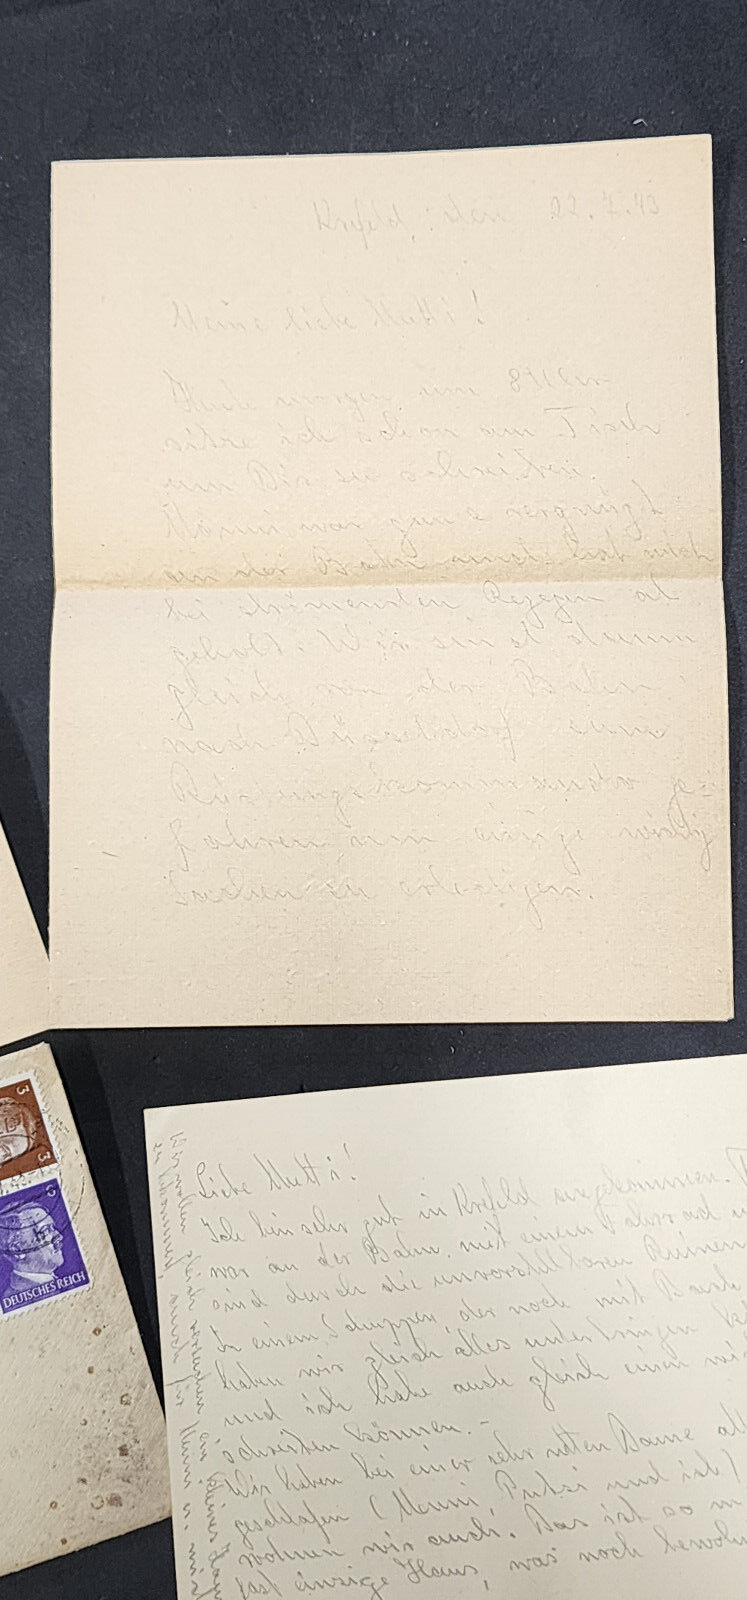 Krefeld, den 22.7.43
Meine liebe Mutti!
Heute morgen um
sitze ich schon am Tisch
um Dir zu schreiben.
war ganz vergnügt
an der Bahn und hat mich
bei strömenden Regegen ab
geholt. Wir sind dann
gleich von der Bahn
nach Düsseldorf zum
Rüstungskommando ge=
fahren um einige wichtig
Sachen zu erledigen.
3
3
DEUTSCHES REICH
Liebe Mutti!
Ich bin sehr gut in Krefeld angekommen.
war an der Bahn mit einem Fahrrad
sind durch die unvorstellbaren Ruinen
In einem Schuppen, der noch mit
haben wir gleich alles unterbringen
und ich habe auch gleich einen
schreiben können. -
Wir haben bei einer sehr netten Dame
geschlafen ( Putzi und ich)
wohnen wir auch. Das ist so
fast einzige Haus, was noch
Wir wollen gleich versuchen ein kleines
zu bekommen, auch für